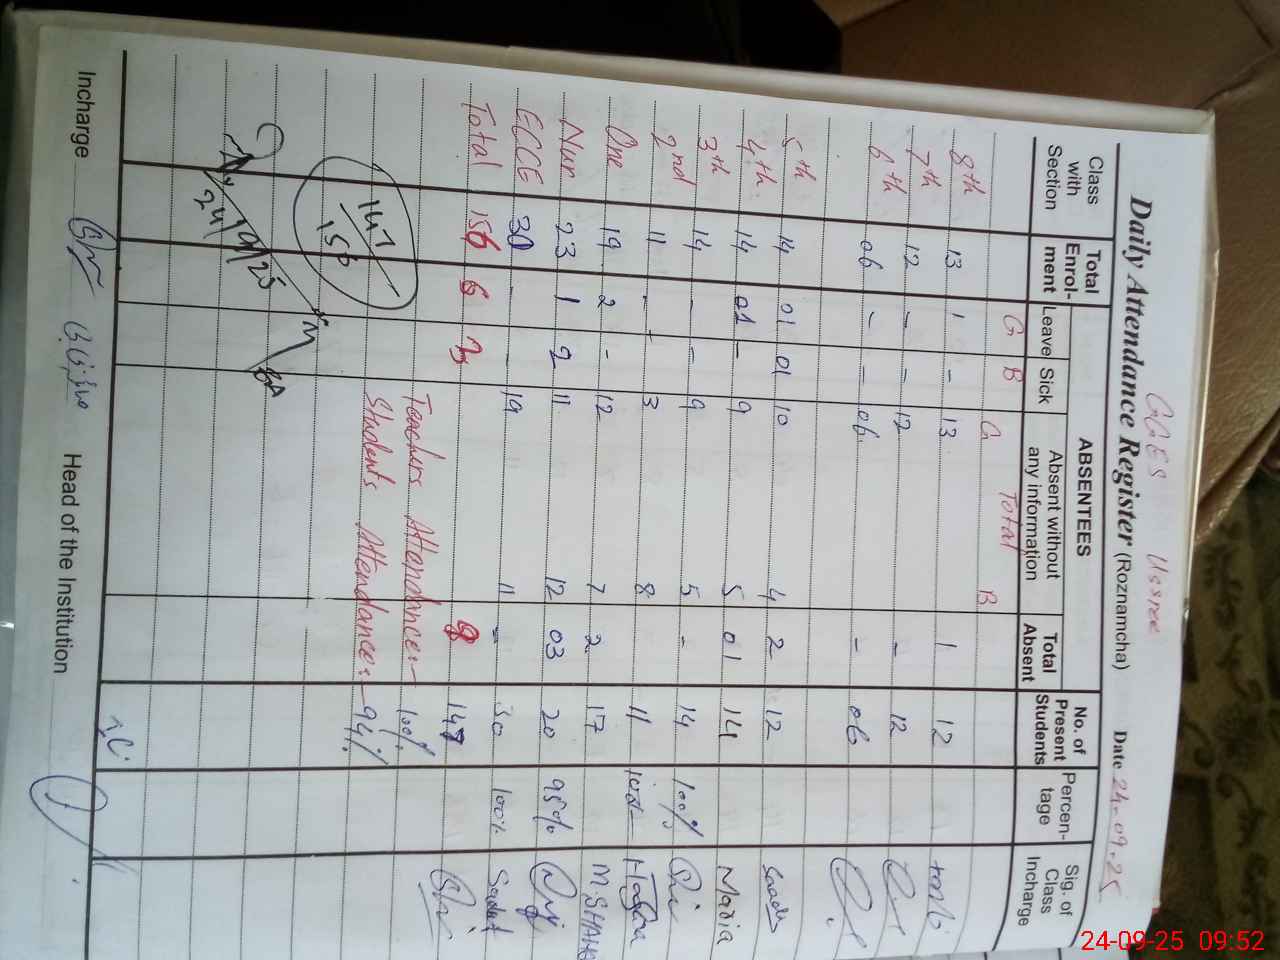 GGES Ussree
Daily Attendance Register (Roznamcha) Date 24-09-25
Class with Section Total Enrol-ment ABSENTEES Leave Sick Absent without any information Total Absent No. of Present Students Percen-tage Sig. of Class Incharge
G B G Total B
8th 13 1 - 13 1 12
7th 12 - - 12 - 12
6th 06 - - 06 - 06
5th 14 01 01 10 4 2 12 Saadia
4th 14 01 - 9 5 01 14 Maria
3th 14 - - 9 5 - 14 100%
2nd 11 - - 3 8 11
One 19 2 - 12 7 2 17
Nur 23 1 2 11 12 03 20 95%
ECCE 30 - - 19 11 - 30 100%
Total 156 6 3 9 147
Teachers Attendance:- 100%
Students Attendance:- 94%
147
156
24/9/25
Incharge Head of the Institution
24-09-25 09:52